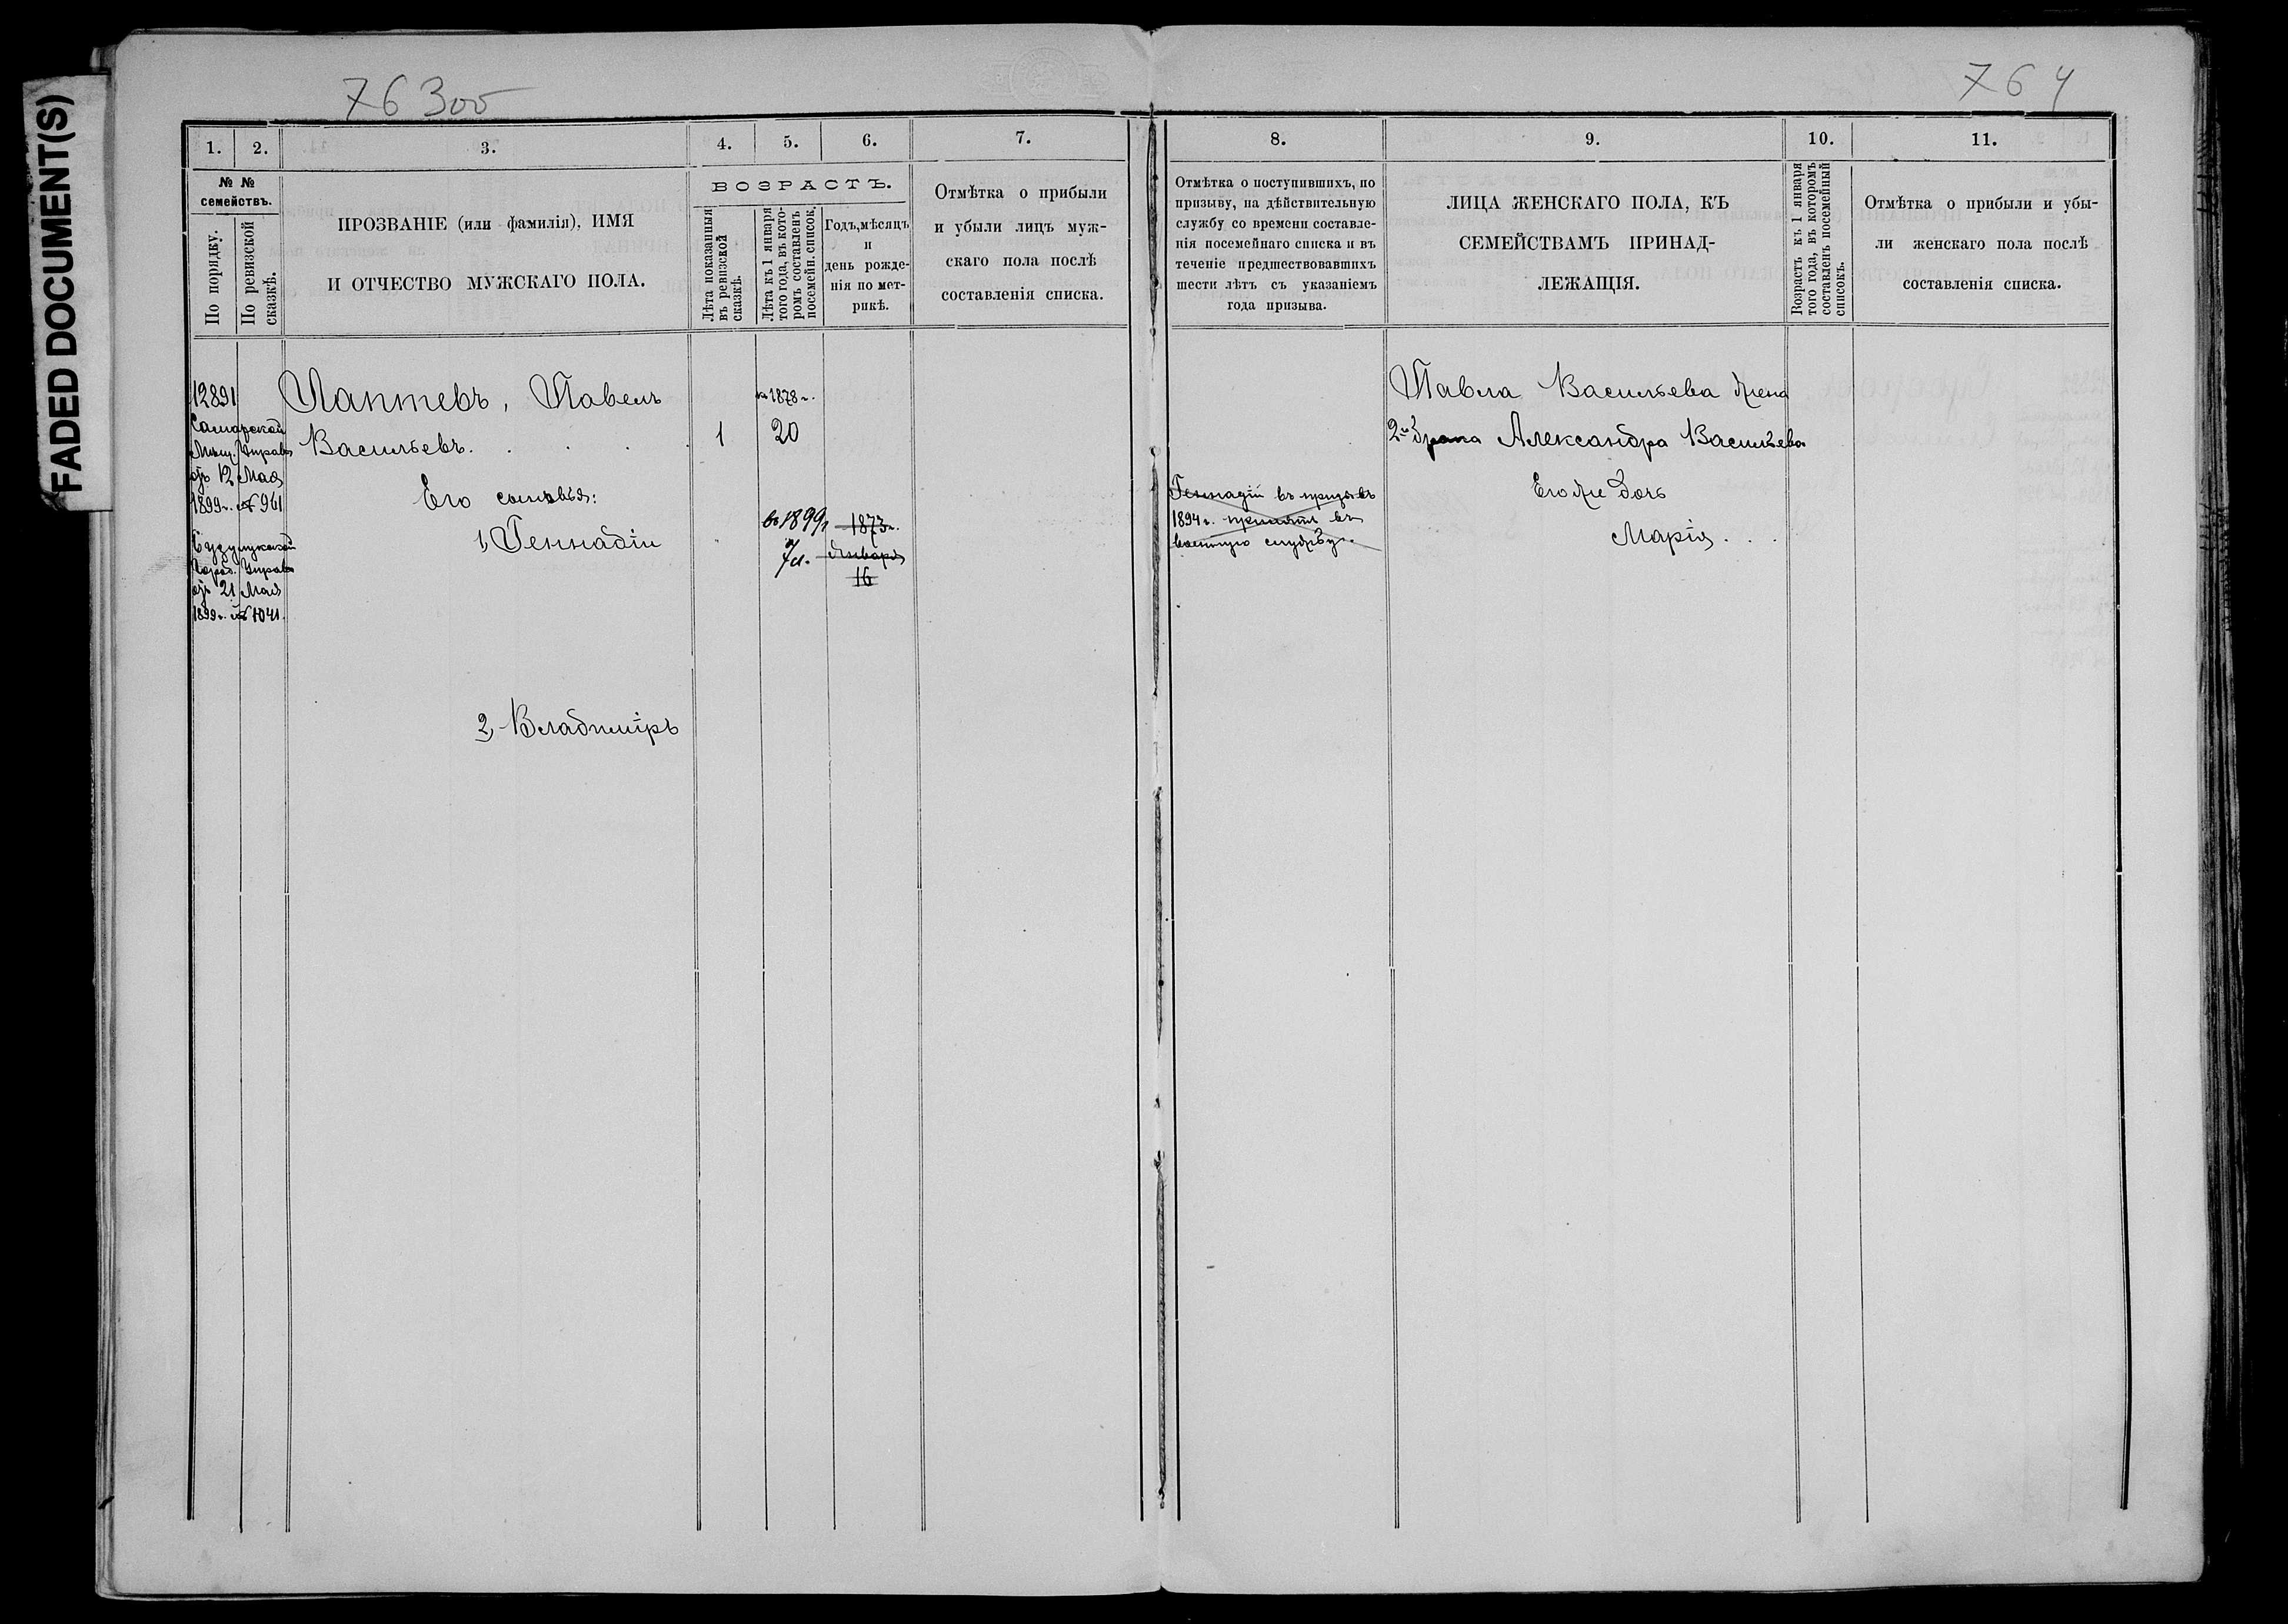 FADED DOCUMENT(S)
76300
764
1.
2.
3.
4.
5.
6.
7.
8.
9.
10.
11.
№ №
семействъ.
По порядку.
По ревизской
сказкѣ.
ПРОЗВАНІЕ (или фамилія), ИМЯ
И ОТЧЕСТВО МУЖСКАГО ПОЛА.
ВОЗРАСТЪ.
Лѣта показанныя
въ ревизской
сказкѣ.
Лѣта къ 1 января
того года, въ кото-
ромъ составленъ
посемейн. список.
Годъ, мѣсяцъ
и
день рожде-
нія по мет-
рикѣ.
Отмѣтка о прибыли
и убыли лицъ муж-
скаго пола послѣ
составленія списка.
Отмѣтка о поступившихъ, по
призыву, на дѣйствительную
службу со времени составле-
нія посемейнаго списка и въ
теченіе предшествовавшихъ
шести лѣтъ съ указаніемъ
года призыва.
ЛИЦА ЖЕНСКАГО ПОЛА, КЪ
СЕМЕЙСТВАМЪ ПРИНАД-
ЛЕЖАЩІЯ.
Возрастъ къ 1 января
того года, въ которомъ
составленъ посемейный
списокъ.
Отмѣтка о прибыли и убы-
ли женскаго пола послѣ
составленія списка.
12891
Самарской
Мѣщ. Управы
отъ 12 Мая
1899 г. № 961
Бузулукской
Город. Управы
отъ 21 Мая
1899 г. № 1041.
Лаптевъ, Павелъ
Васильевъ. . . .
1
къ 1878 г.
20
Его сыновья:
1, Геннадіи
въ 1899 г
7 л.
1873 г.
Января
16
2, Владиміръ
Геннадій въ призывъ
1894 г. принятъ въ
военную службу.
Павла Васильева жена
2го брака Александра Васильева
Его же дочь
Марія. . .